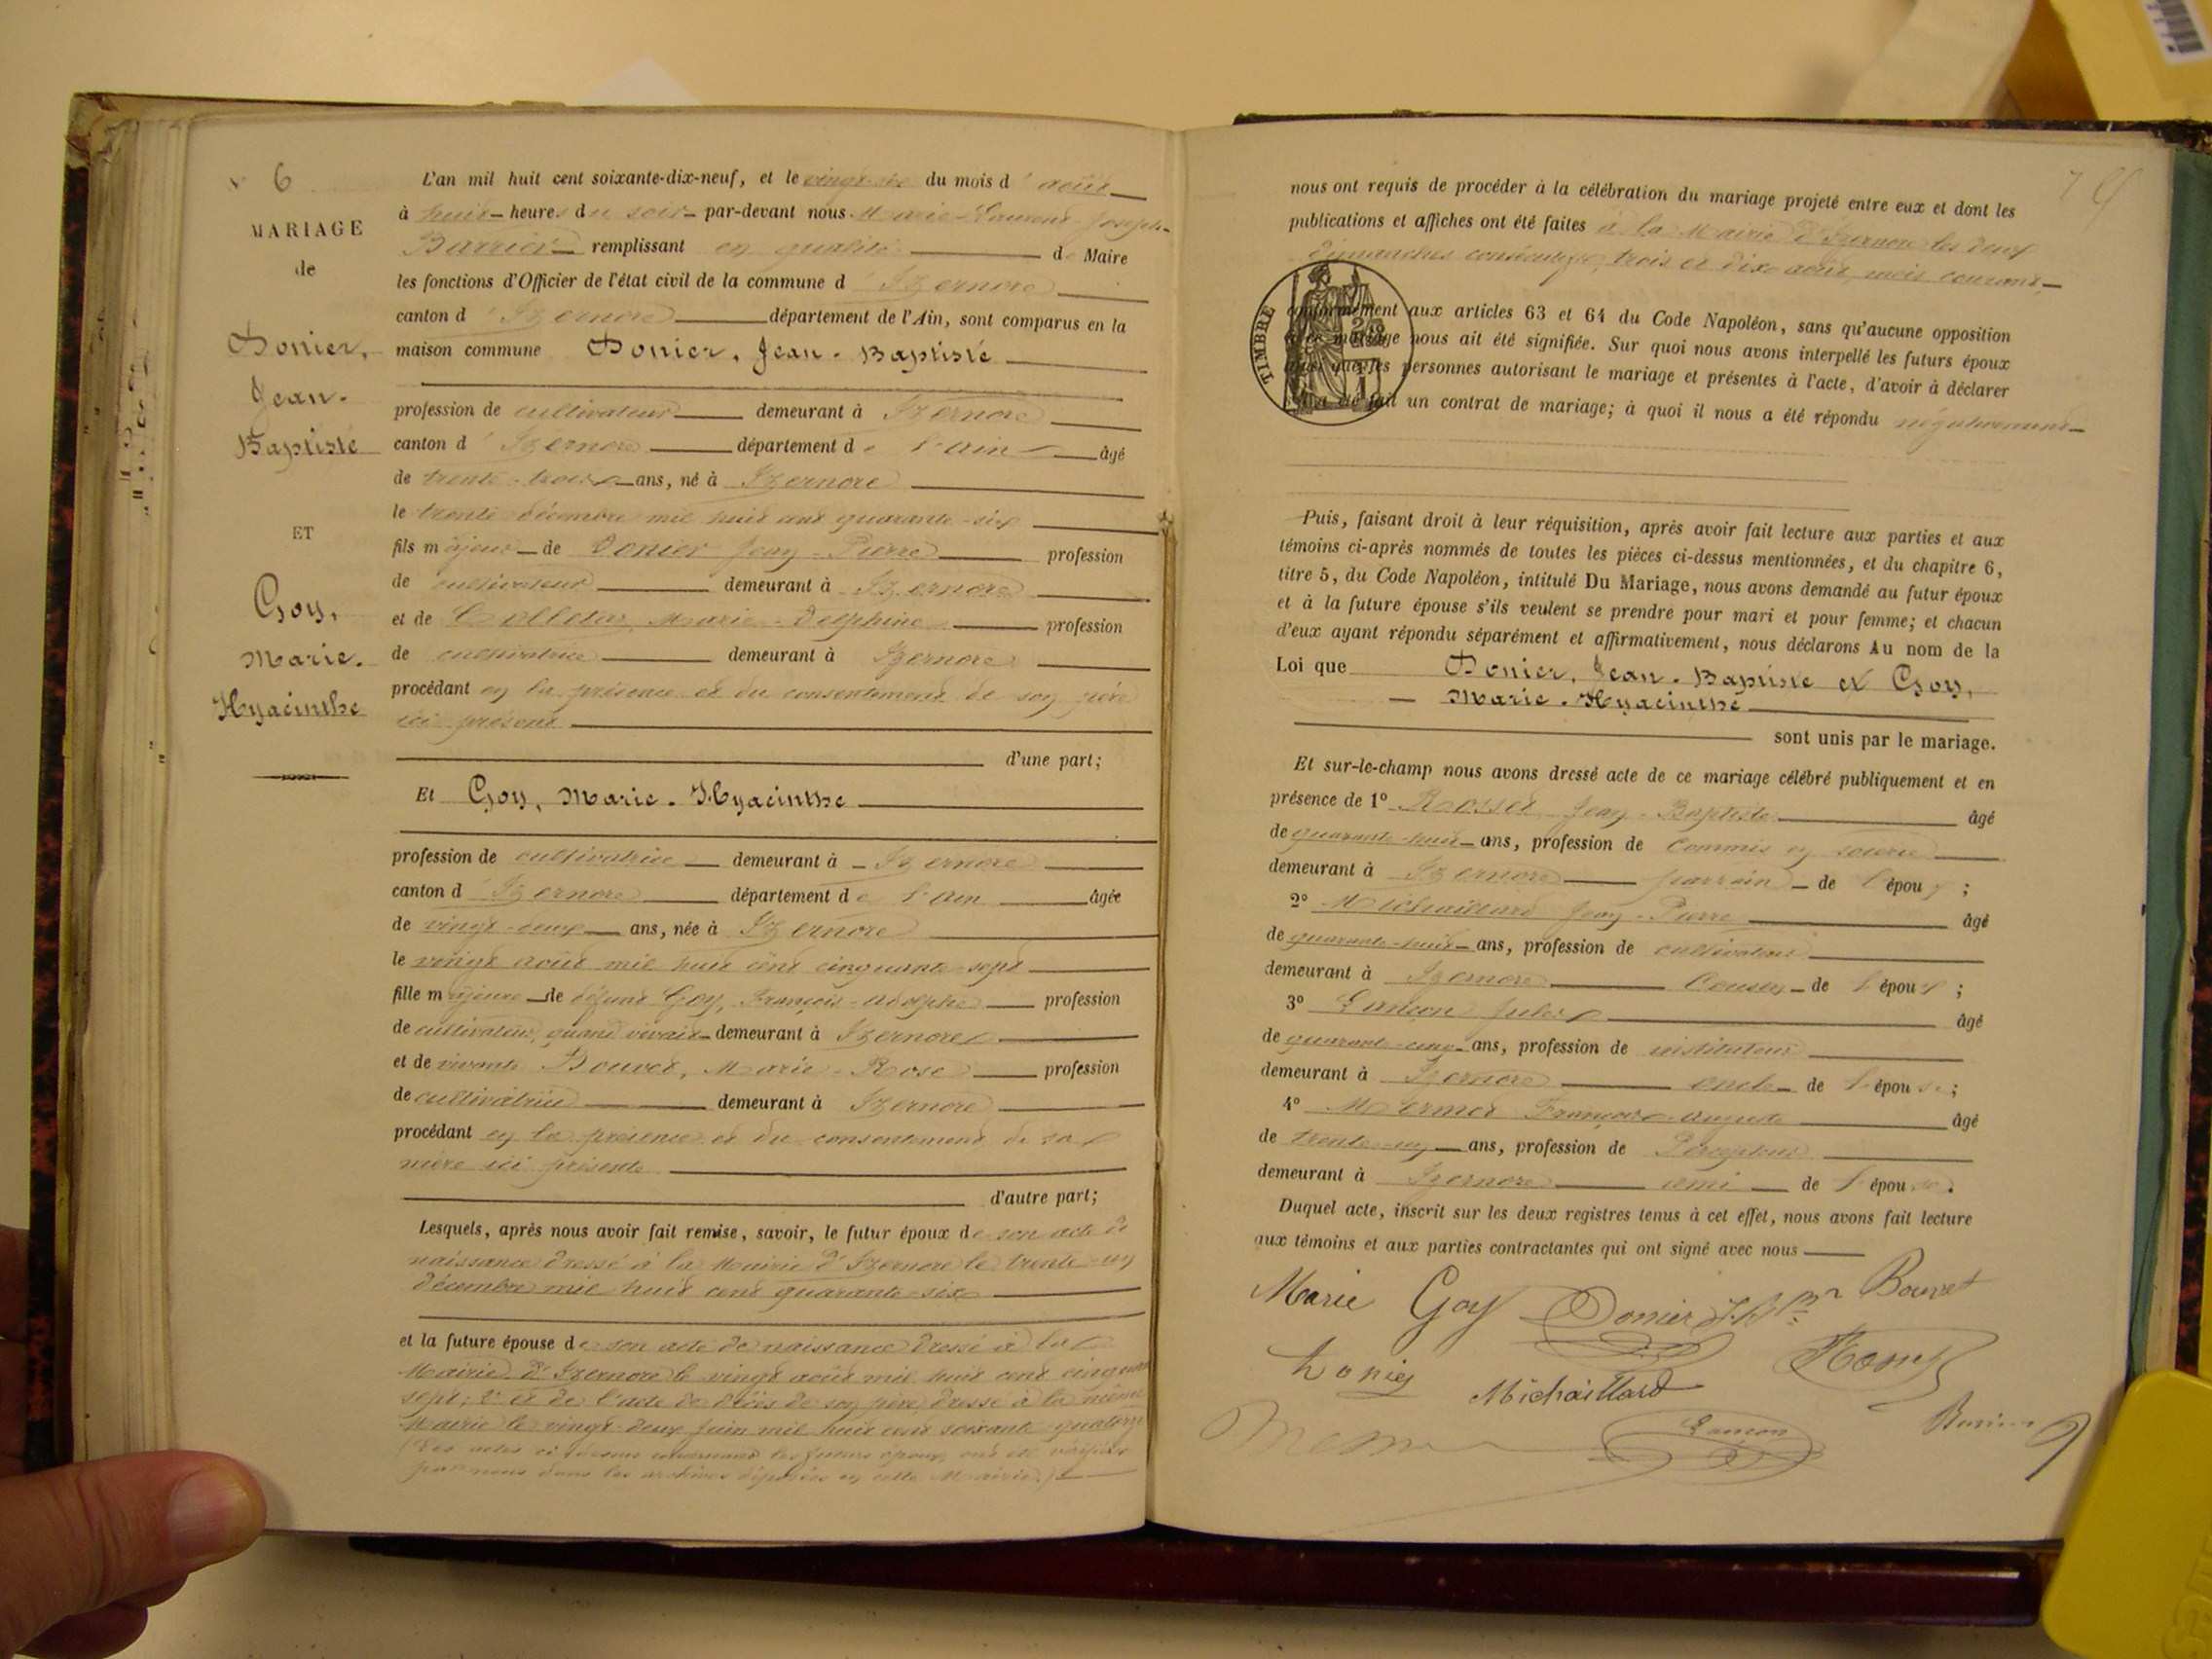 6
MARIAGE
de
Donier,
Jean-
Baptiste
ET
Goy,
Marie-
Hyacinthe
L'an mil huit cent soixante-dix-neuf, et le vingt du mois d'août
à huit heures du soir par-devant nous Marie-Laurent-Joseph-
Barrier remplissant en qualité de Maire
les fonctions d'Officier de l'état civil de la commune d'Izernore
canton d'Izernore département de l'Ain, sont comparus en la
maison commune Donier, Jean-Baptiste
profession de cultivateur demeurant à Izernore
canton d'Izernore département de l'Ain âgé
de trente-trois ans, né à Izernore
le trente décembre mil huit cent quarante-six
fils majeur de Donier Jean-Pierre profession
de cultivateur demeurant à Izernore
et de Colletaz Marie-Delphine profession
de cultivatrice demeurant à Izernore
procédant en la présence et du consentement de son père
ici présent
d'une part;
Et Goy, Marie-Hyacinthe
profession de cultivatrice demeurant à Izernore
canton d'Izernore département de l'Ain âgée
de vingt-deux ans, née à Izernore
le vingt août mil huit cent cinquante-sept
fille majeure de défunt Goy, François-Adolphe profession
de cultivateur, quand vivait demeurant à Izernore
et de vivante Bouvet, Marie-Rose profession
de cultivatrice demeurant à Izernore
procédant en la présence et du consentement de sa
mère ici présente
d'autre part;
Lesquels, après nous avoir fait remise, savoir, le futur époux de son acte de
naissance dressé à la Mairie d'Izernore le trente-un
décembre mil huit cent quarante-six
et la future épouse de son acte de naissance dressé à la
Mairie d'Izernore le vingt août mil huit cent cinquante
sept; 2° et de l'acte de décès de son père dressé à la même
Mairie le vingt-deux juin mil huit cent soixante-quatorze
(Les actes ci-dessus concernant les futurs époux ont été vérifiés
par nous dans les archives déposées en cette Mairie)
nous ont requis de procéder à la célébration du mariage projeté entre eux et dont les
publications et affiches ont été faites à la Mairie d'Izernore les deux
dimanches consécutifs, trois et dix août, mois courant,
TIMBRE
conformément aux articles 63 et 64 du Code Napoléon, sans qu'aucune opposition
à ce mariage nous ait été signifiée. Sur quoi nous avons interpellé les futurs époux
ainsi que les personnes autorisant le mariage et présentes à l'acte, d'avoir à déclarer
s'il a été fait un contrat de mariage; à quoi il nous a été répondu négativement
Puis, faisant droit à leur réquisition, après avoir fait lecture aux parties et aux
témoins ci-après nommés de toutes les pièces ci-dessus mentionnées, et du chapitre 6,
titre 5, du Code Napoléon, intitulé Du Mariage, nous avons demandé au futur époux
et à la future épouse s'ils veulent se prendre pour mari et pour femme; et chacun
d'eux ayant répondu séparément et affirmativement, nous déclarons Au nom de la
Loi que Donier, Jean-Baptiste et Goy,
Marie-Hyacinthe
sont unis par le mariage.
Et sur-le-champ nous avons dressé acte de ce mariage célébré publiquement et en
présence de 1° Rosset Jean-Baptiste âgé
de quarante-huit ans, profession de Commis en soierie
demeurant à Izernore parrain de l'époux;
2° Michaillard Jean-Pierre âgé
de quarante-huit ans, profession de cultivateur
demeurant à Izernore Cousin de l'époux;
3° Lançon Jules âgé
de quarante-cinq ans, profession de instituteur
demeurant à Izernore oncle de l'épouse;
4° Mermet François-Auguste âgé
de trente-un ans, profession de Percepteur
demeurant à Izernore ami de l'épouse.
Duquel acte, inscrit sur les deux registres tenus à cet effet, nous avons fait lecture
aux témoins et aux parties contractantes qui ont signé avec nous
Marie Goy Donier J.B. Bouvet
Michaillard
Lançon